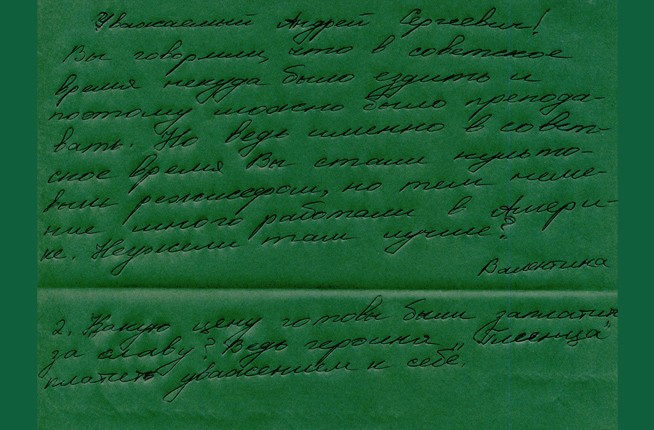 Уважаемый Андрей Сергеевич!
Вы говорили, что в советское
время некуда было ездить и
поэтому можно было препода-
вать. Но ведь именно в совет-
ское время Вы стали культо-
вым режиссером, но тем неме-
ние много работали в Амери-
ке. Неужели там лучше?
Валентина
2. Какую цену готовы были заплатить
за славу? Ведь героиня "Глянца"
платить уважением к себе.